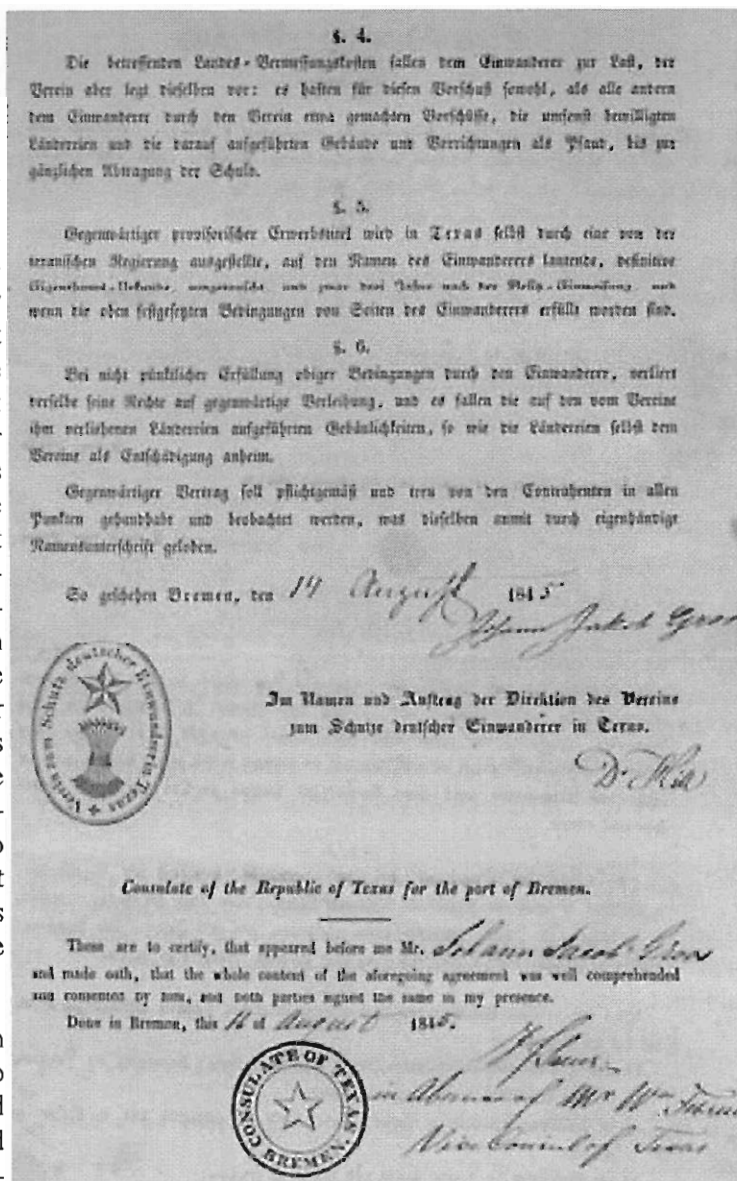 §. 4.
Die betreffenden Landes-Vermessungskosten fallen dem Einwanderer zur Last, der
Verein aber legt dieselben vor: es haften für diesen Vorschuß sowohl, als alle andern
dem Einwanderer durch den Verein etwa gemachten Vorschüsse, die umsonst bewilligten
Ländereien und die darauf aufgeführten Gebäude und Verrichtungen als Pfand, bis zur
gänzlichen Abtragung der Schuld.
§. 5.
Gegenwärtiger provisorischer Erwerbstitel wird in Texas selbst durch eine von der
texanischen Regierung ausgestellte, auf den Namen des Einwanderers lautende, definitive
Eigenthums-Urkunde, ausgetauscht, und zwar drei Jahre nach der Besitz-Einweisung, und
wenn die oben festgesetzten Bedingungen von Seiten des Einwanderers erfüllt worden sind.
§. 6.
Bei nicht pünktlicher Erfüllung obiger Bedingungen durch den Einwanderer, verliert
derselbe seine Rechte auf gegenwärtige Verleihung, und es fallen die auf den vom Vereine
ihm verliehenen Ländereien aufgeführten Gebäulichkeiten, so wie die Ländereien selbst dem
Vereine als Entschädigung anheim.
Gegenwärtiger Vertrag soll pflichtgemäß und treu von den Contrahenten in allen
Punkten gehandhabt und beobachtet werden, was dieselben anmit durch eigenhändige
Namensunterschrift geloben.
So geschehen Bremen, den 14 August 1845
Johann Jakob Groos
Verein zum Schutz deutscher Einwanderer in Texas
Im Namen und Auftrag der Direktion des Vereins
zum Schutze deutscher Einwanderer in Texas.
Dr
Consulate of the Republic of Texas for the port of Bremen.
These are to certify, that appeared before me Mr. Johann Jacob Groos
and made oath, that the whole content of the aforegoing agreement was well comprehended
and consented by him, and both parties signed the same in my presence.
Done in Bremen, this of August 1845.
in absence of Mr Wm
Vice Consul of Texas
CONSULATE OF TEXAS
BREMEN.